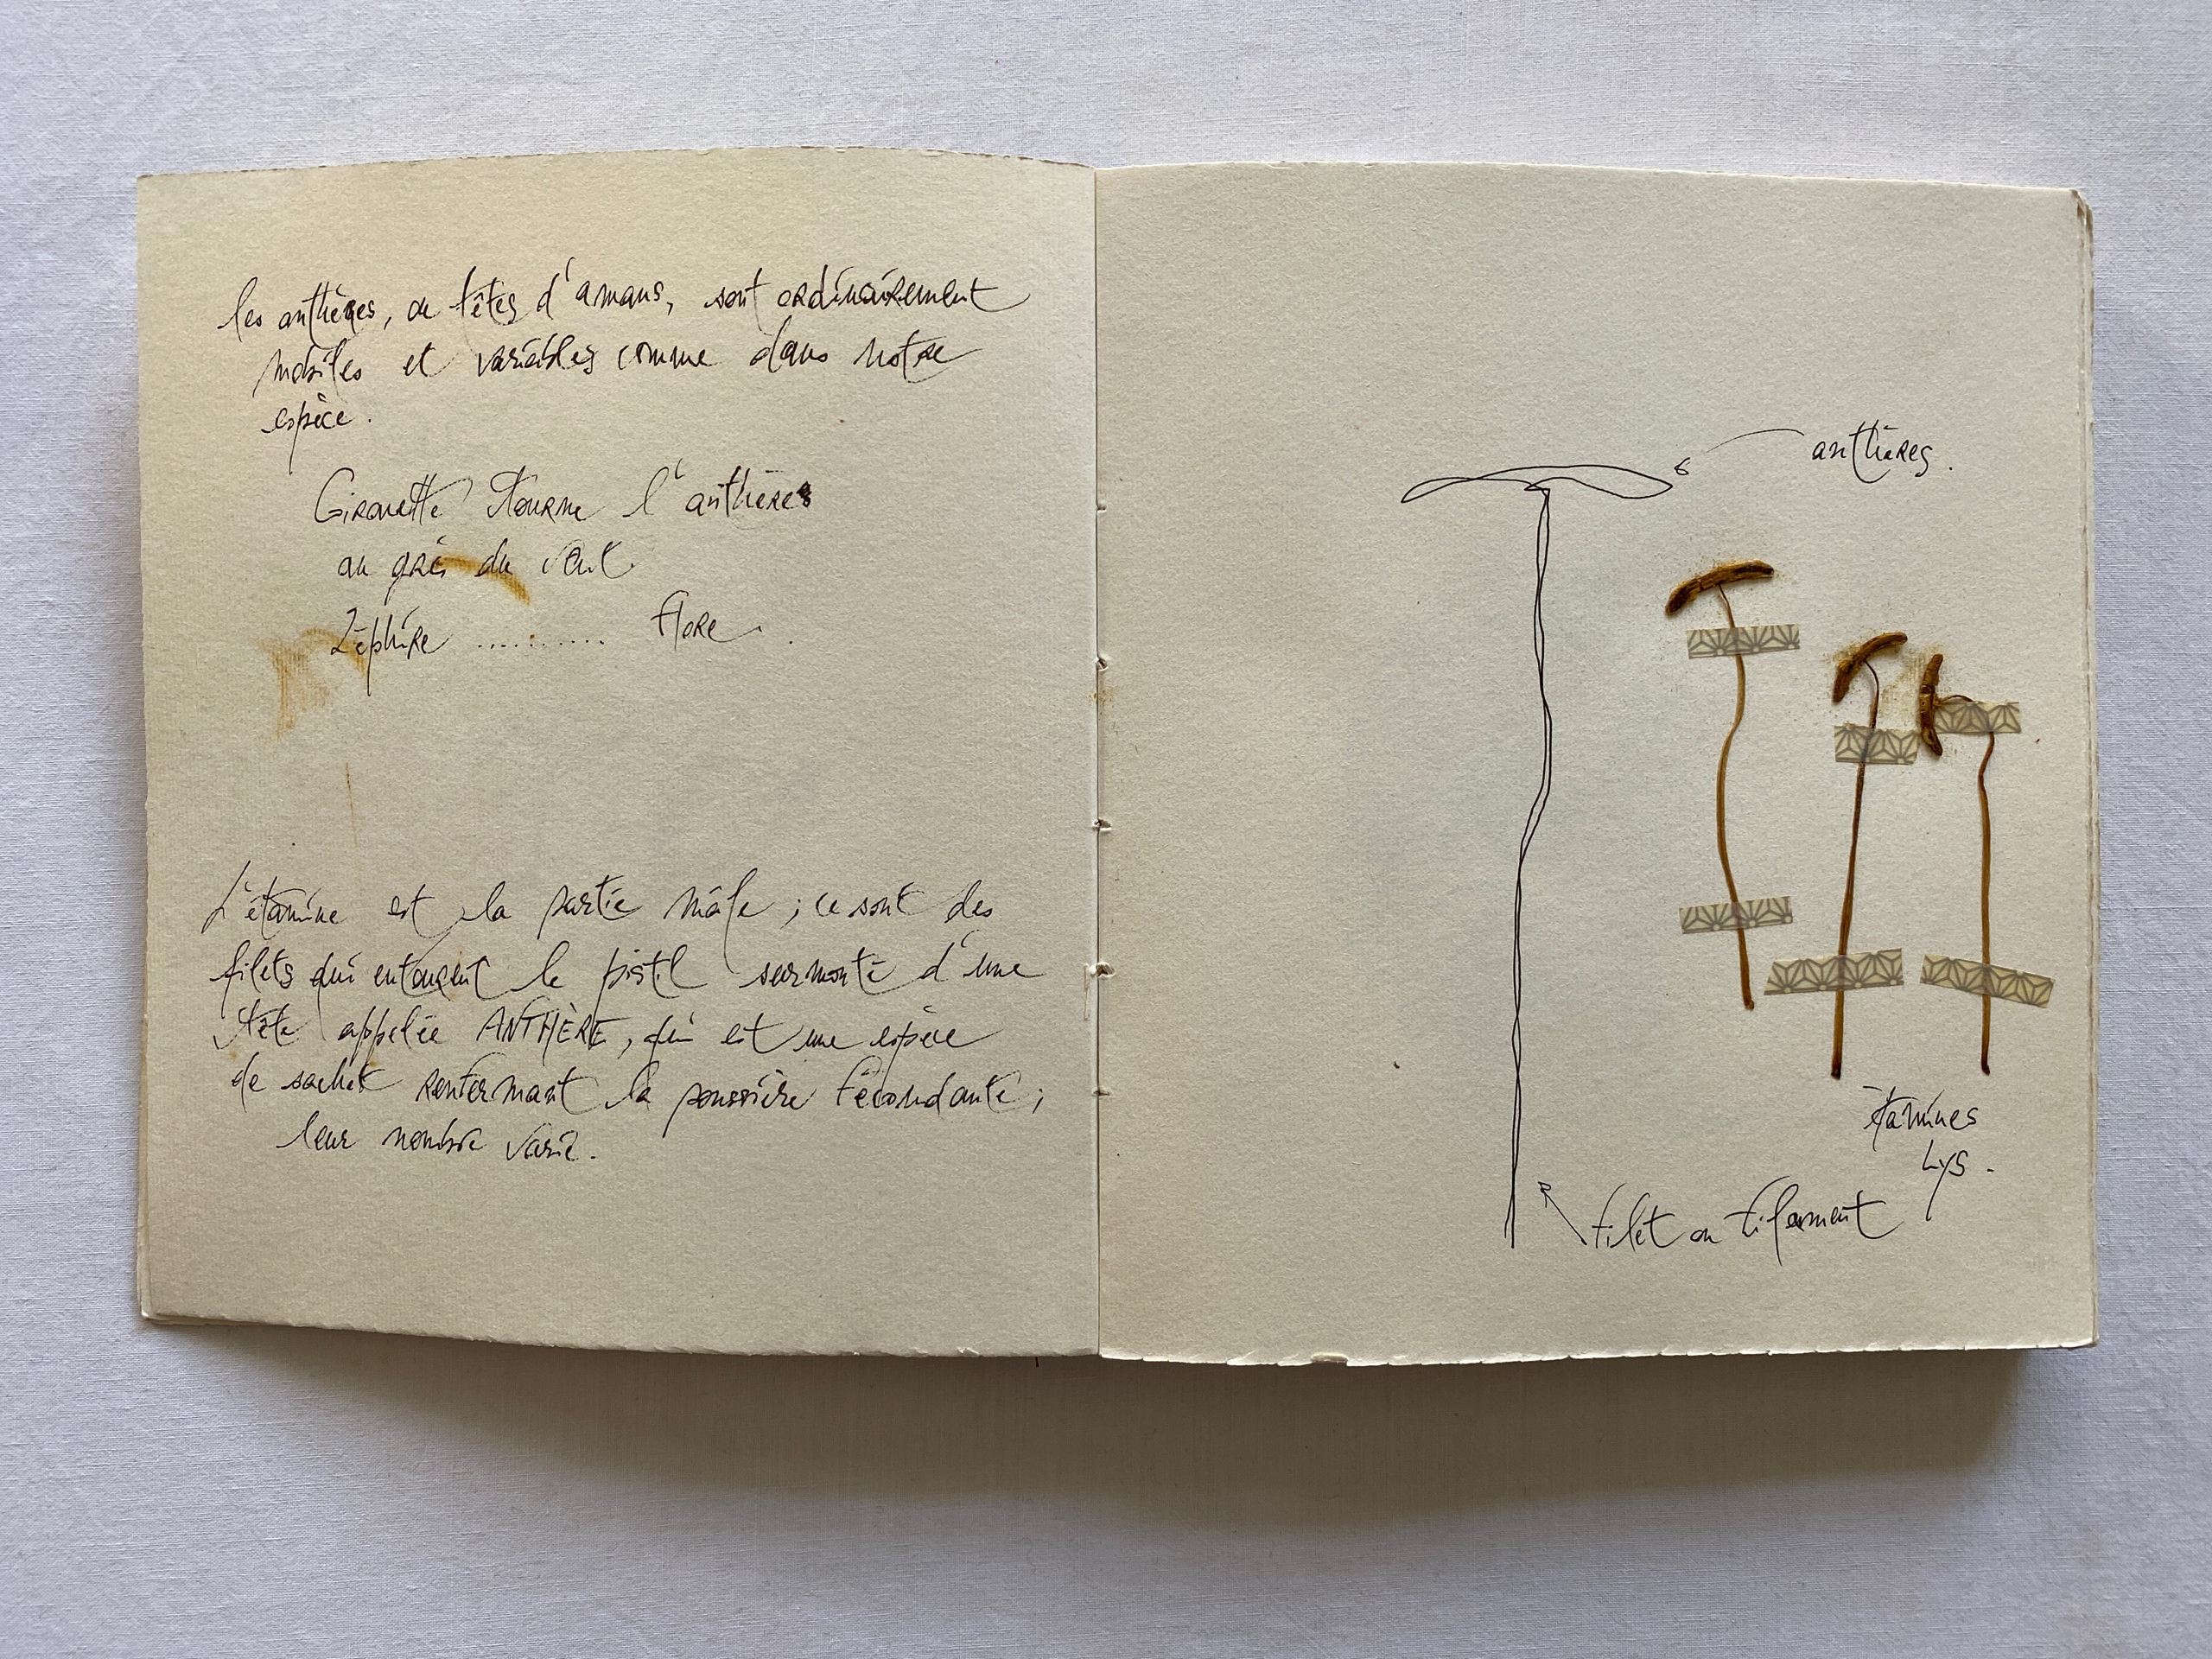 les anthères, ou têtes d'amans, sont ordinairement
mobiles et variables comme dans notre
espèce.
Girouette tourne l'anthères
au grès du vent
Zéphire .......... Flore .
L'étamine est la partie mâle ; ce sont des
filets qui entourent le pistil surmonté d'une
tête appelée ANTHÈRE, qui est une espèce
de sachet renfermant la poussière fécondante ;
leur nombre varie.
anthères.
étamines
Lys.
filet ou filament